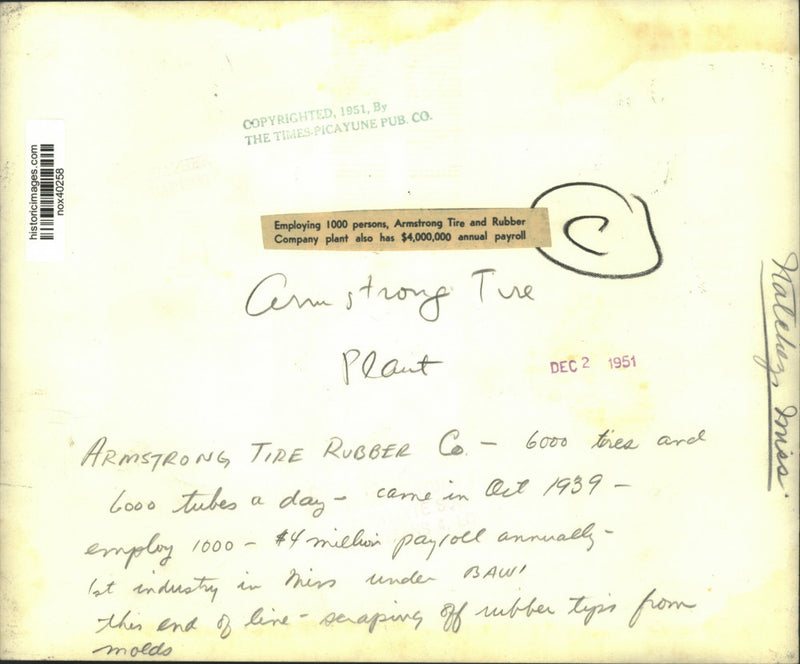 COPYRIGHTED, 1951, By
THE TIMES-PICAYUNE PUB. CO.
historicimages.com
nox40258
Employing 1000 persons, Armstrong Tire and Rubber
Company plant also has $4,000,000 annual payroll
C
Armstrong Tire
Plant
DEC 2 1951
Natchez, Miss.
ARMSTRONG TIRE RUBBER Co. – 6000 tires and
6000 tubes a day – came in Oct 1939 –
employ 1000 – $4 million payroll annually –
1st industry in Miss under BAWI
this end of line – scraping off rubber tips from
molds